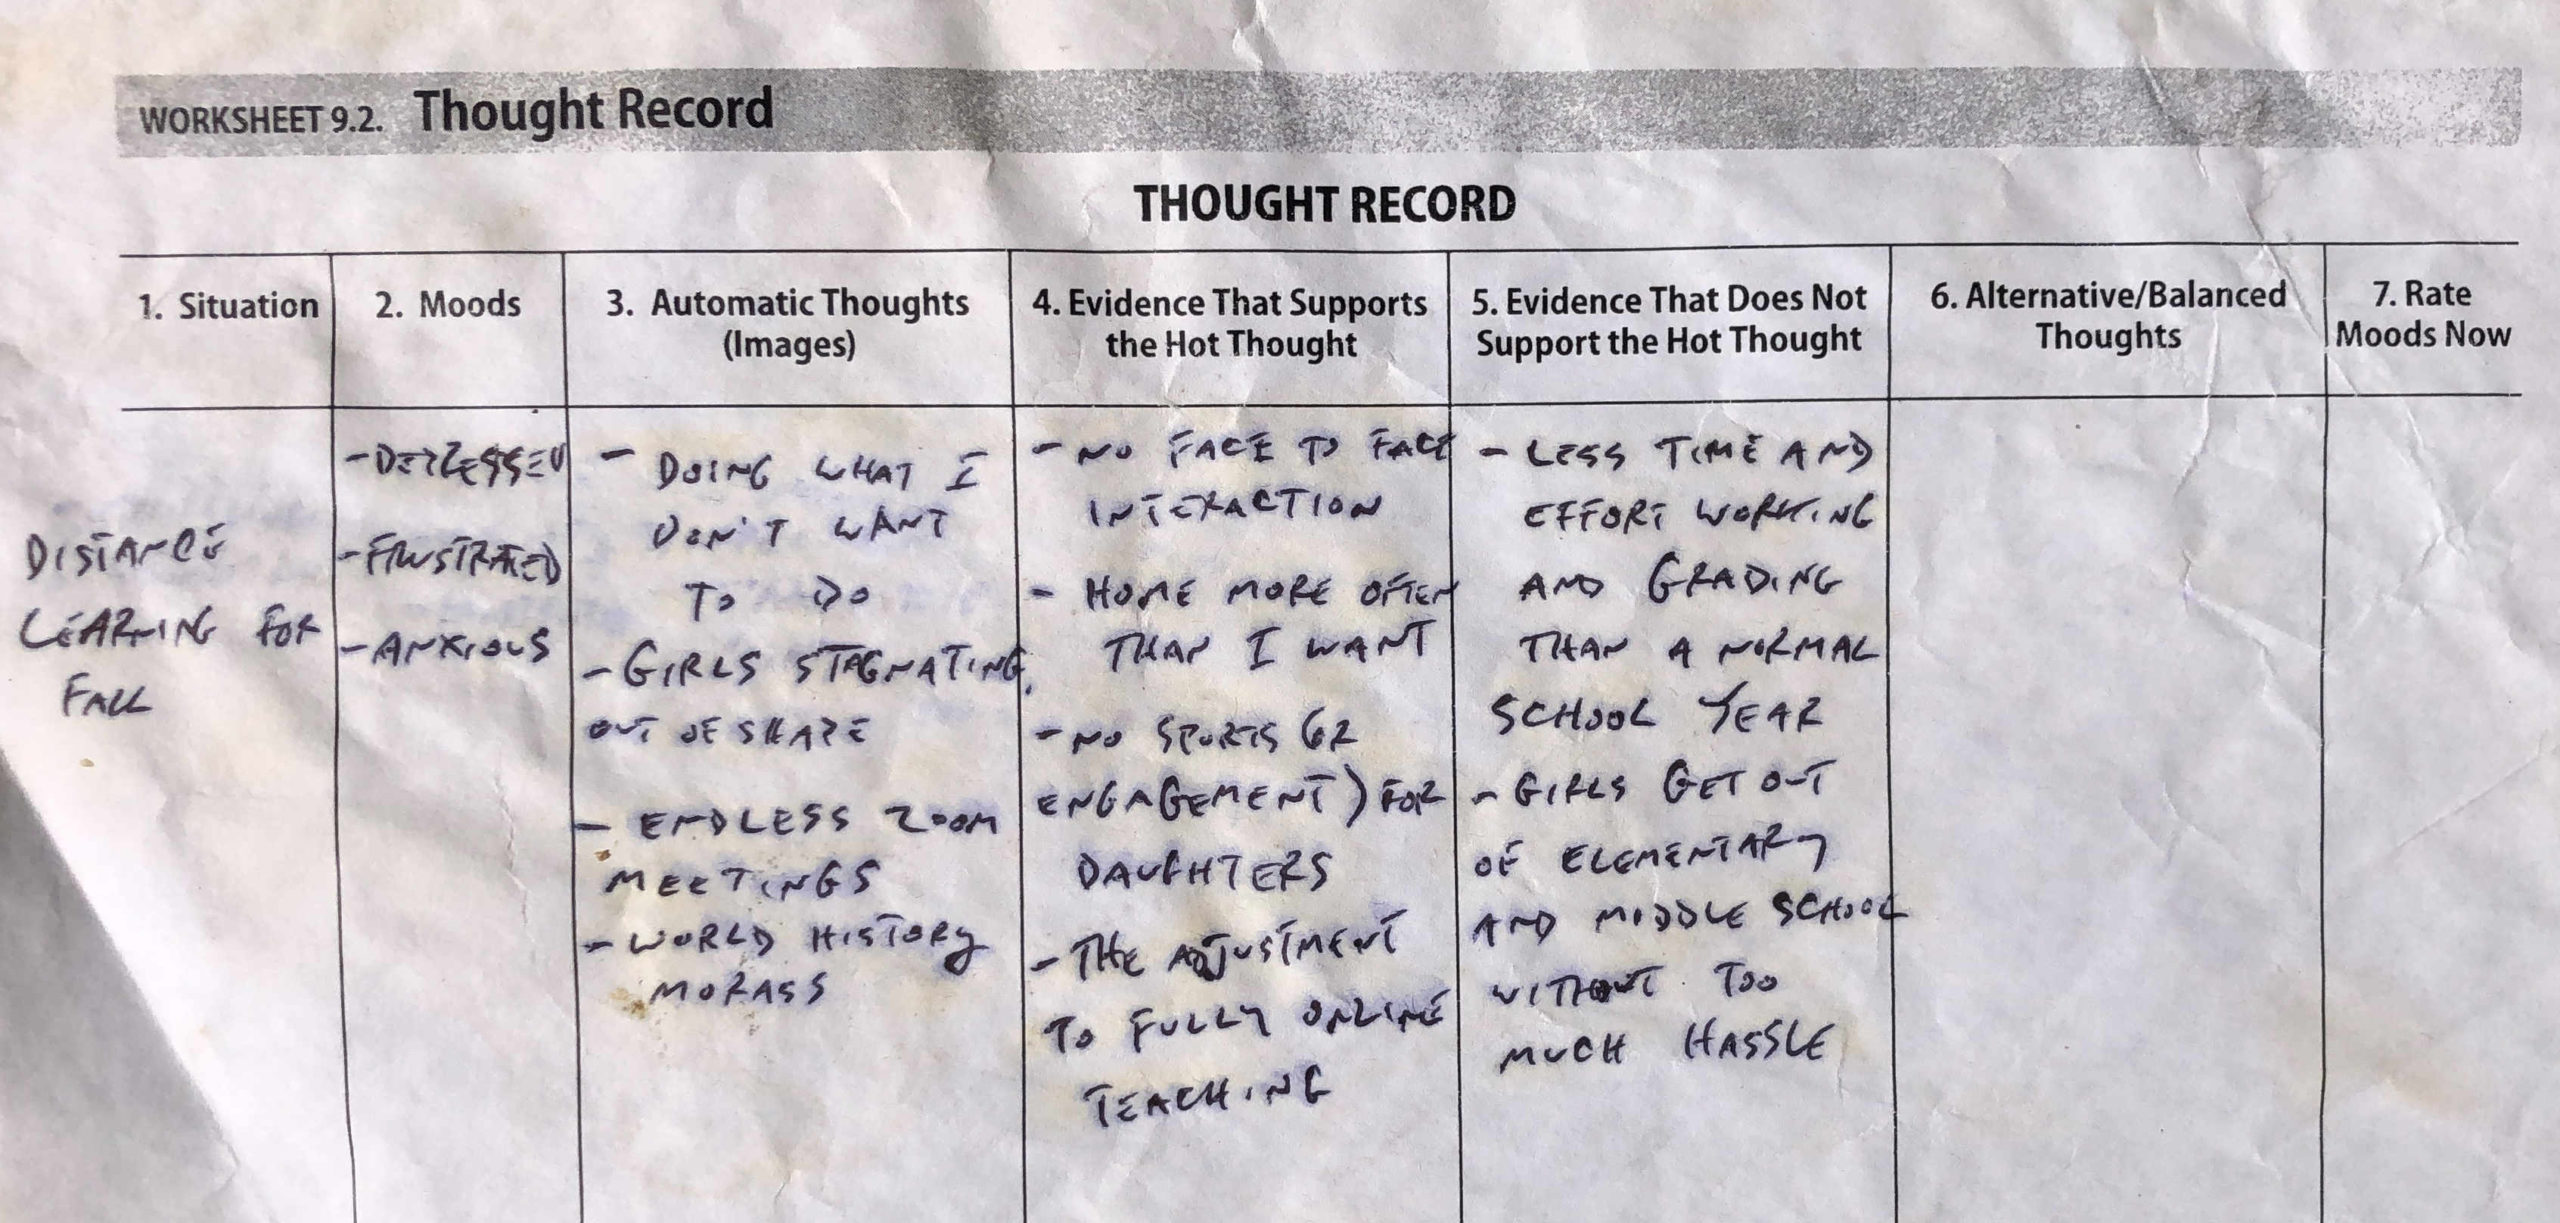 WORKSHEET 9.2. Thought Record
THOUGHT RECORD
1. Situation
2. Moods
3. Automatic Thoughts
(Images)
4. Evidence That Supports
the Hot Thought
5. Evidence That Does Not
Support the Hot Thought
6. Alternative/Balanced
Thoughts
7. Rate
Moods Now
DISTANCE
LEARNING FOR
FALL
- DEPRESSED
- FRUSTRATED
- ANXIOUS
- DOING WHAT I
DON'T WANT
TO DO
- GIRLS STAGNATING,
OUT OF SHAPE
- ENDLESS ZOOM
MEETINGS
- WORLD HISTORY
MORASS
- NO FACE TO FACE
INTERACTION
- HOME MORE OFTEN
THAN I WANT
- NO SPORTS (OR
ENGAGEMENT) FOR
DAUGHTERS
- THE ADJUSTMENT
TO FULLY ONLINE
TEACHING
- LESS TIME AND
EFFORT WORKING
AND GRADING
THAN A NORMAL
SCHOOL YEAR
- GIRLS GET OUT
OF ELEMENTARY
AND MIDDLE SCHOOL
WITHOUT TOO
MUCH HASSLE